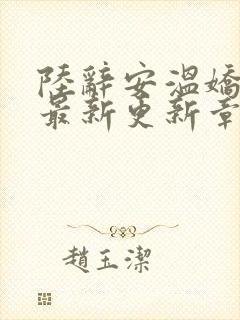 陸辭安溫嬌
最新更新章
趙玉潔